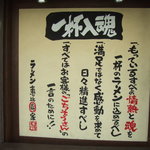 一杯入魂
一、もてい百すべの情熱と魂を
一杯のラーメンに込めるべし
一、満足ではなく感動を求めて
日々精進すべし
一、すべてはお客様のごちそうさんの
一言のために!!
ラーメン